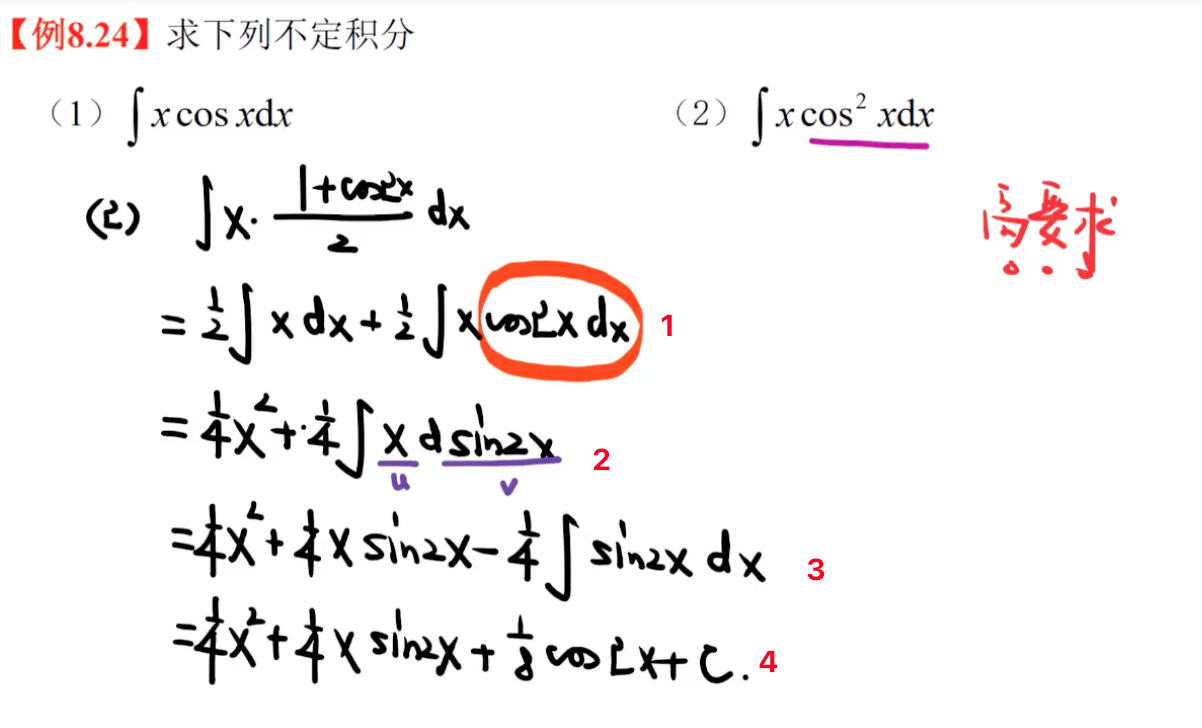 【例8.24】求下列不定积分
(1) ∫x cos xdx (2) ∫x cos² xdx
(2) ∫x·(1+cos2x)/2 dx
高要求
= 1/2∫x dx + 1/2∫x cos2x dx 1
= 1/4x² + 1/4∫x d sin2x 2
u v
= 1/4x² + 1/4x sin2x - 1/4∫sin2x dx 3
= 1/4x² + 1/4x sin2x + 1/8 cos2x + C. 4